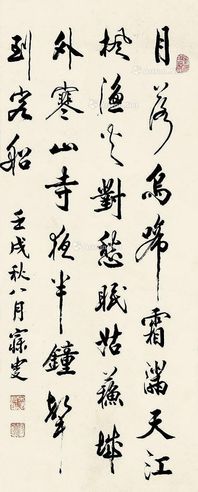 月落烏啼霜滿天江
楓漁火對愁眠姑蘇城
外寒山寺夜半鐘聲
到客船 壬戌秋八月寐叟